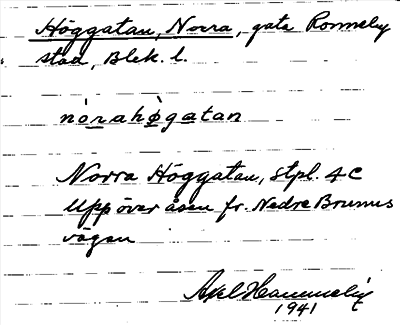 Höggatan, Norra, gata Ronneby
stad, Blek. l.
nòrahø̀gatan
Norra Höggatan, Stpl. 4C
Upp över åsen fr. Nedre Brunns
vägen
Axel Hammelin
1941